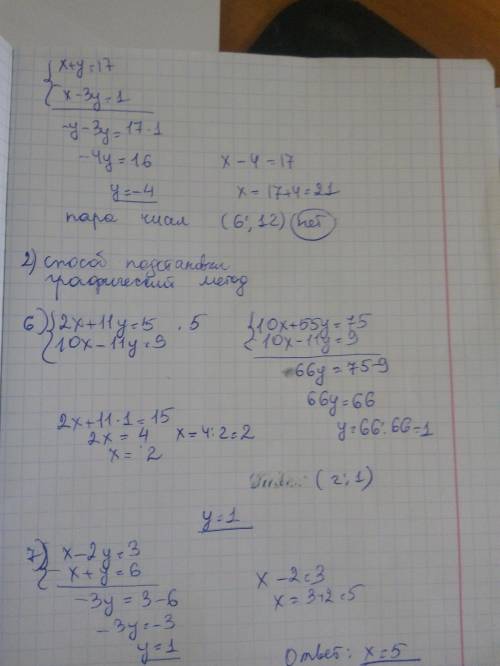 x+y=17
x-3y=1
-y-3y=17-1
-4y=16
x-4=17
y=-4
x=17+4=21
пара чисел (6; 12) нет
2) способ подстановки
графический метод
6) 2x+11y=15 · 5
10x-11y=9
10x+55y=75
10x-11y=9
66y=75-9
66y=66
y=66:66=1
2x+11·1=15
2x=4 x=4:2=2
x=2
(2; 1)
y=1
7) x-2y=3
x+y=6
-3y=3-6
-3y=-3
y=1
x-2=3
x=3+2=5
Ответ: x=5